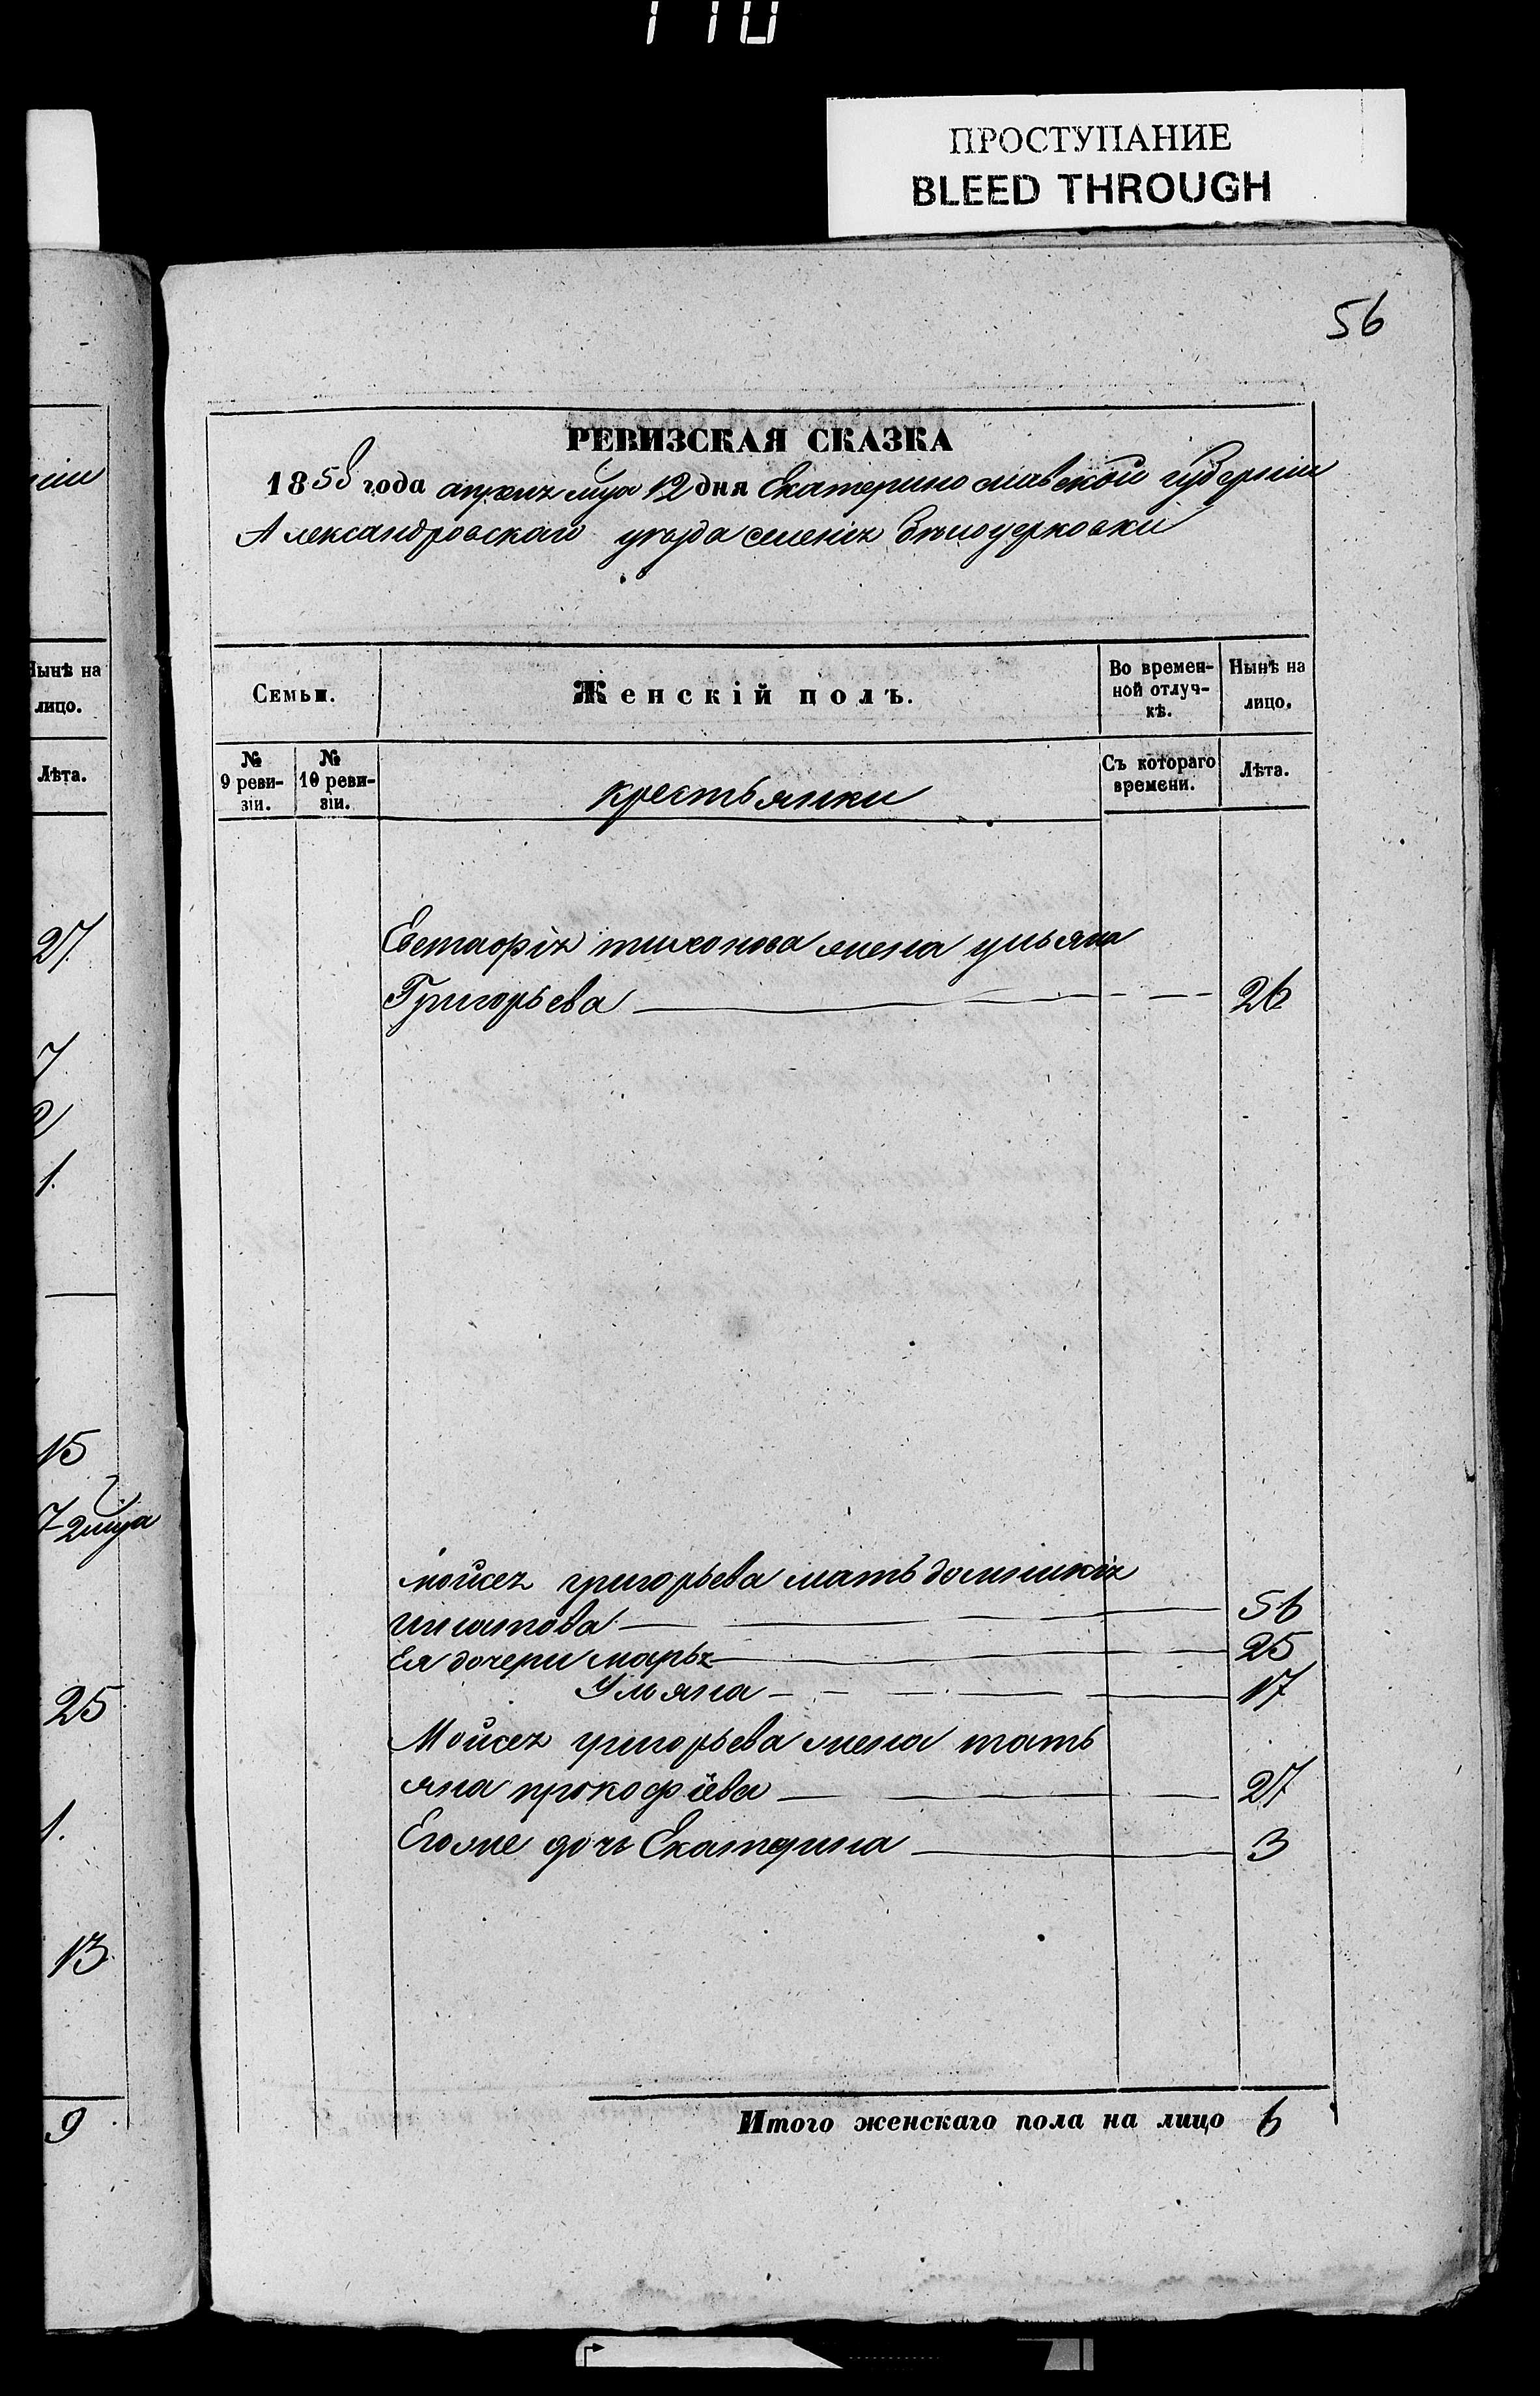 110
ПРОСТУПАНИЕ
BLEED THROUGH
56
РЕВИЗСКАЯ СКАЗКА
1858 года апреля мца 12 дня Екатерино славской губернiи
Александровскаго уезда селения белоцерковки
Семьи.
Женскій полъ.
Во времен-
ной отлуч-
кѣ.
Нынѣ на
лицо.
№
9 реви-
зіи.
№
10 реви-
зіи.
крестьянки
Съ котораго
времени.
Лѣта.
Евстафія тихонова жена ульяна
Григорьева 26
мойсея григорьева мать
56
Ея дочери марья 25
Ульяна 17
Мойсея григорьева жена тать
яна прокофіева 27
Егоже дочь Екатерина 3
Итого женскаго пола на лицо 6
Нынѣ на
лицо.
Лѣта.
27
7
2
1.
15
7 2 мца
25
1.
13
9